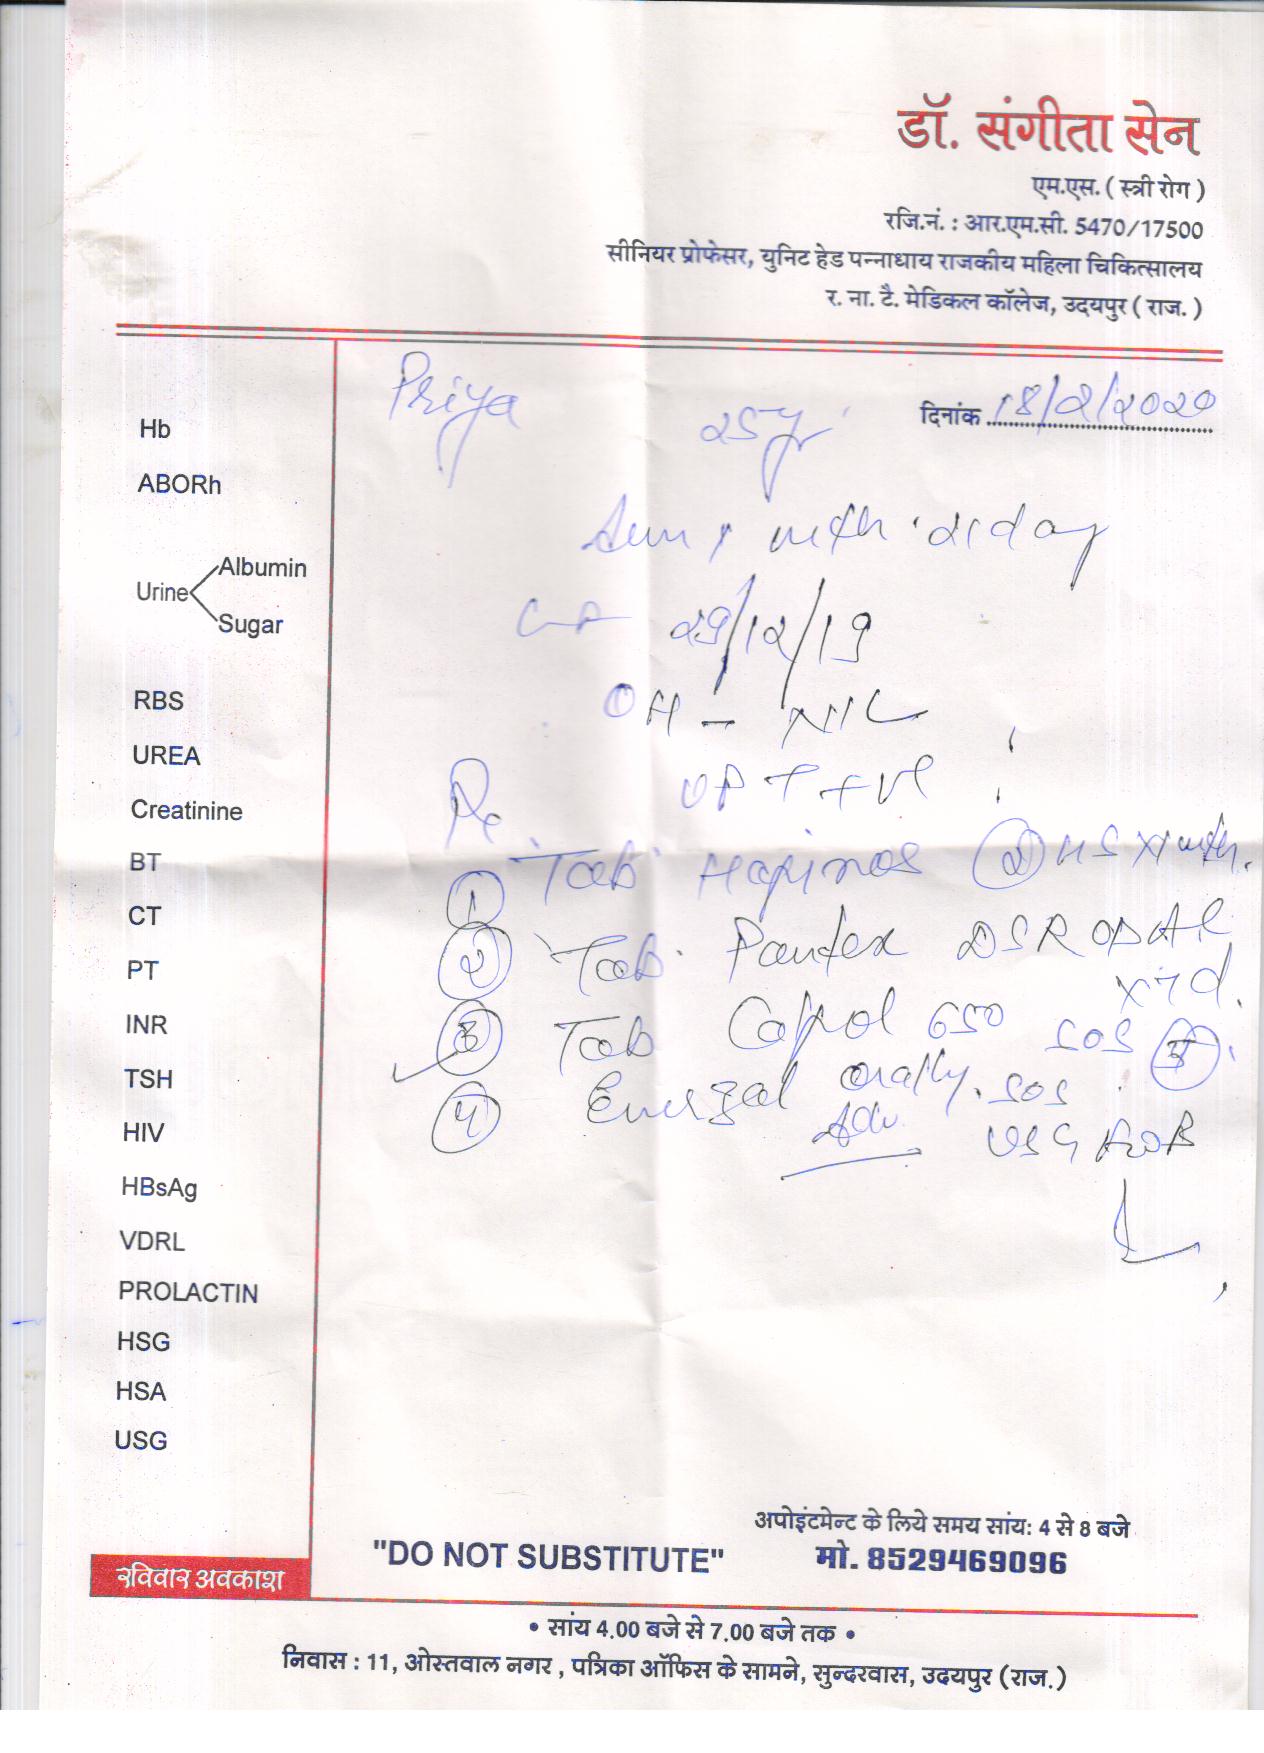 डॉ. संगीता सेन
एम.एस. ( स्त्री रोग )
रजि.नं. : आर.एम.सी. 5470/17500
सीनियर प्रोफेसर, युनिट हेड पन्नाधाय राजकीय महिला चिकित्सालय
र. ना. टै. मेडिकल कॉलेज, उदयपुर ( राज. )
Priya 25y दिनांक 18/2/2020
Hb
ABORh
with 21 day
29/12/19
Urine Albumin
Sugar
OH - NIL
UPT +ve
RBS
UREA
Creatinine
BT
CT
PT
INR
TSH
HIV
HBsAg
VDRL
PROLACTIN
HSG
HSA
USG
1 Tab HS
2 Tab. Pantex DSR OD AC
x 7 d.
3 Tab 650 SOS 5
4 Energal orally. SOS
Adv. USG
अपोइंटमेन्ट के लिये समय सांय: 4 से 8 बजे
"DO NOT SUBSTITUTE" मो. 8529469096
रविवार अवकाश
• सांय 4.00 बजे से 7.00 बजे तक •
निवास : 11, ओस्तवाल नगर , पत्रिका ऑफिस के सामने, सुन्दरवास, उदयपुर (राज.)